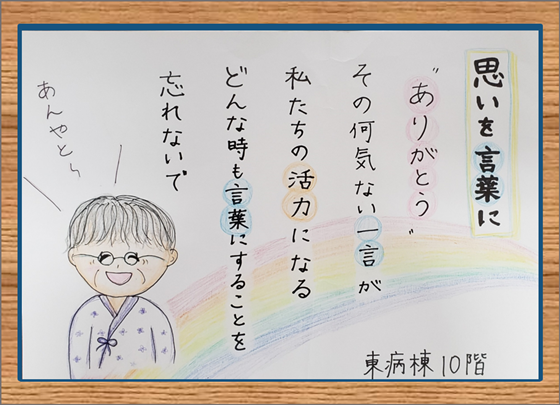 思いを言葉に
“ありがとう”
その何気ない一言が
私たちの活力になる
どんな時も言葉にすることを
忘れないで
あんやとぅ
東病棟10階